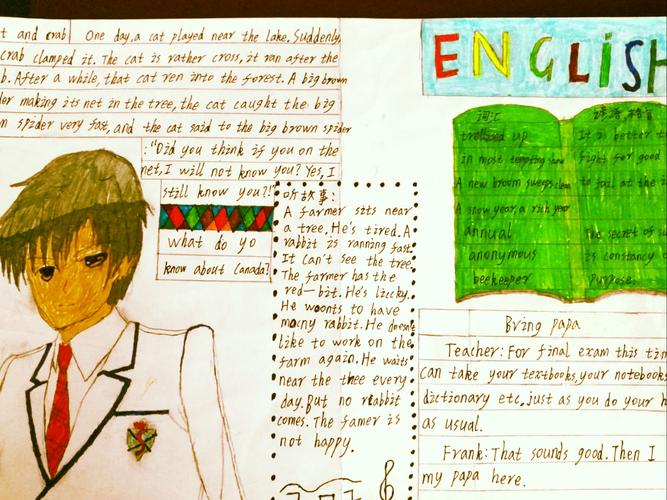 t and crab One day, a cat played near the lake. Suddenly,
crab clamped it. The cat is rather cross, it ran after the
b. After a while, that cat ren into the forest. A big brown
der making its net in the tree, the cat caught the big
n spider very fast, and the cat said to the big brown spider
:"Did you think if you on the
net, I will not know you? Yes, I
still know you?!"
what do yo
know about Canada?
小故事:
A farmer sits near
a tree. He's tired. A
rabbit is ranning fast.
It can't see the tree.
The farmer has the
red—bit. He's lucky.
He woonts to have
many rabbit. He doesn't
like to work on the
farm again. He waits
near the thee every
day. But no rabbit
comes. The famer is
not happy.
ENGLISH
词汇
trollised up
in most tempting
A new broom sweeps clean
A snow year, a rich year
annual
anonymous
beekeeper
谚语,格言
It is better t
fight for good
to fail at the i
The secret of su
is constancy o
Purpose.
Bring papa
Teacher: For final exam this tim
can take your textbooks, your notebooks
dictionary etc, just as you do your h
as usual.
Frank: That sounds good. Then I
my papa here.